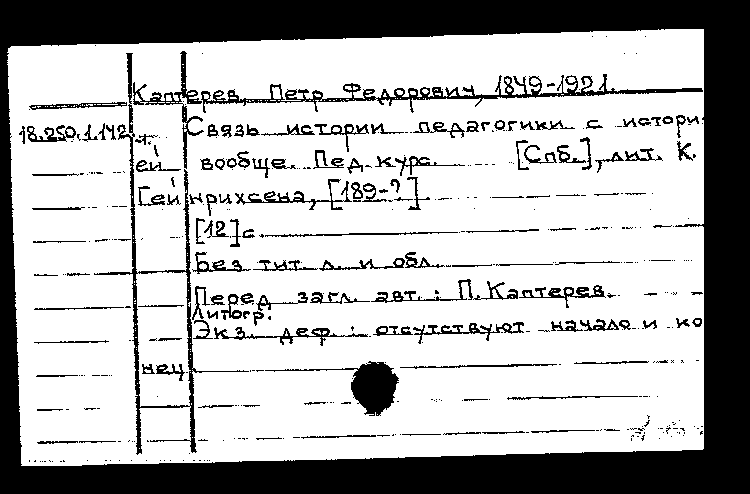 Каптерев, Петр Федорович, 1849-1921.
18.250.1.142 Связь истории педагогики с истори-
т. ей вообще. Пед. курс. [Спб.], лит. К.
Гейнрихсена, [189-?].
[12]с.
Без тит. л. и обл.
Перед загл. авт.: П. Каптерев.
Литогр.
Экз. деф.: отсутствуют начало и ко
нец